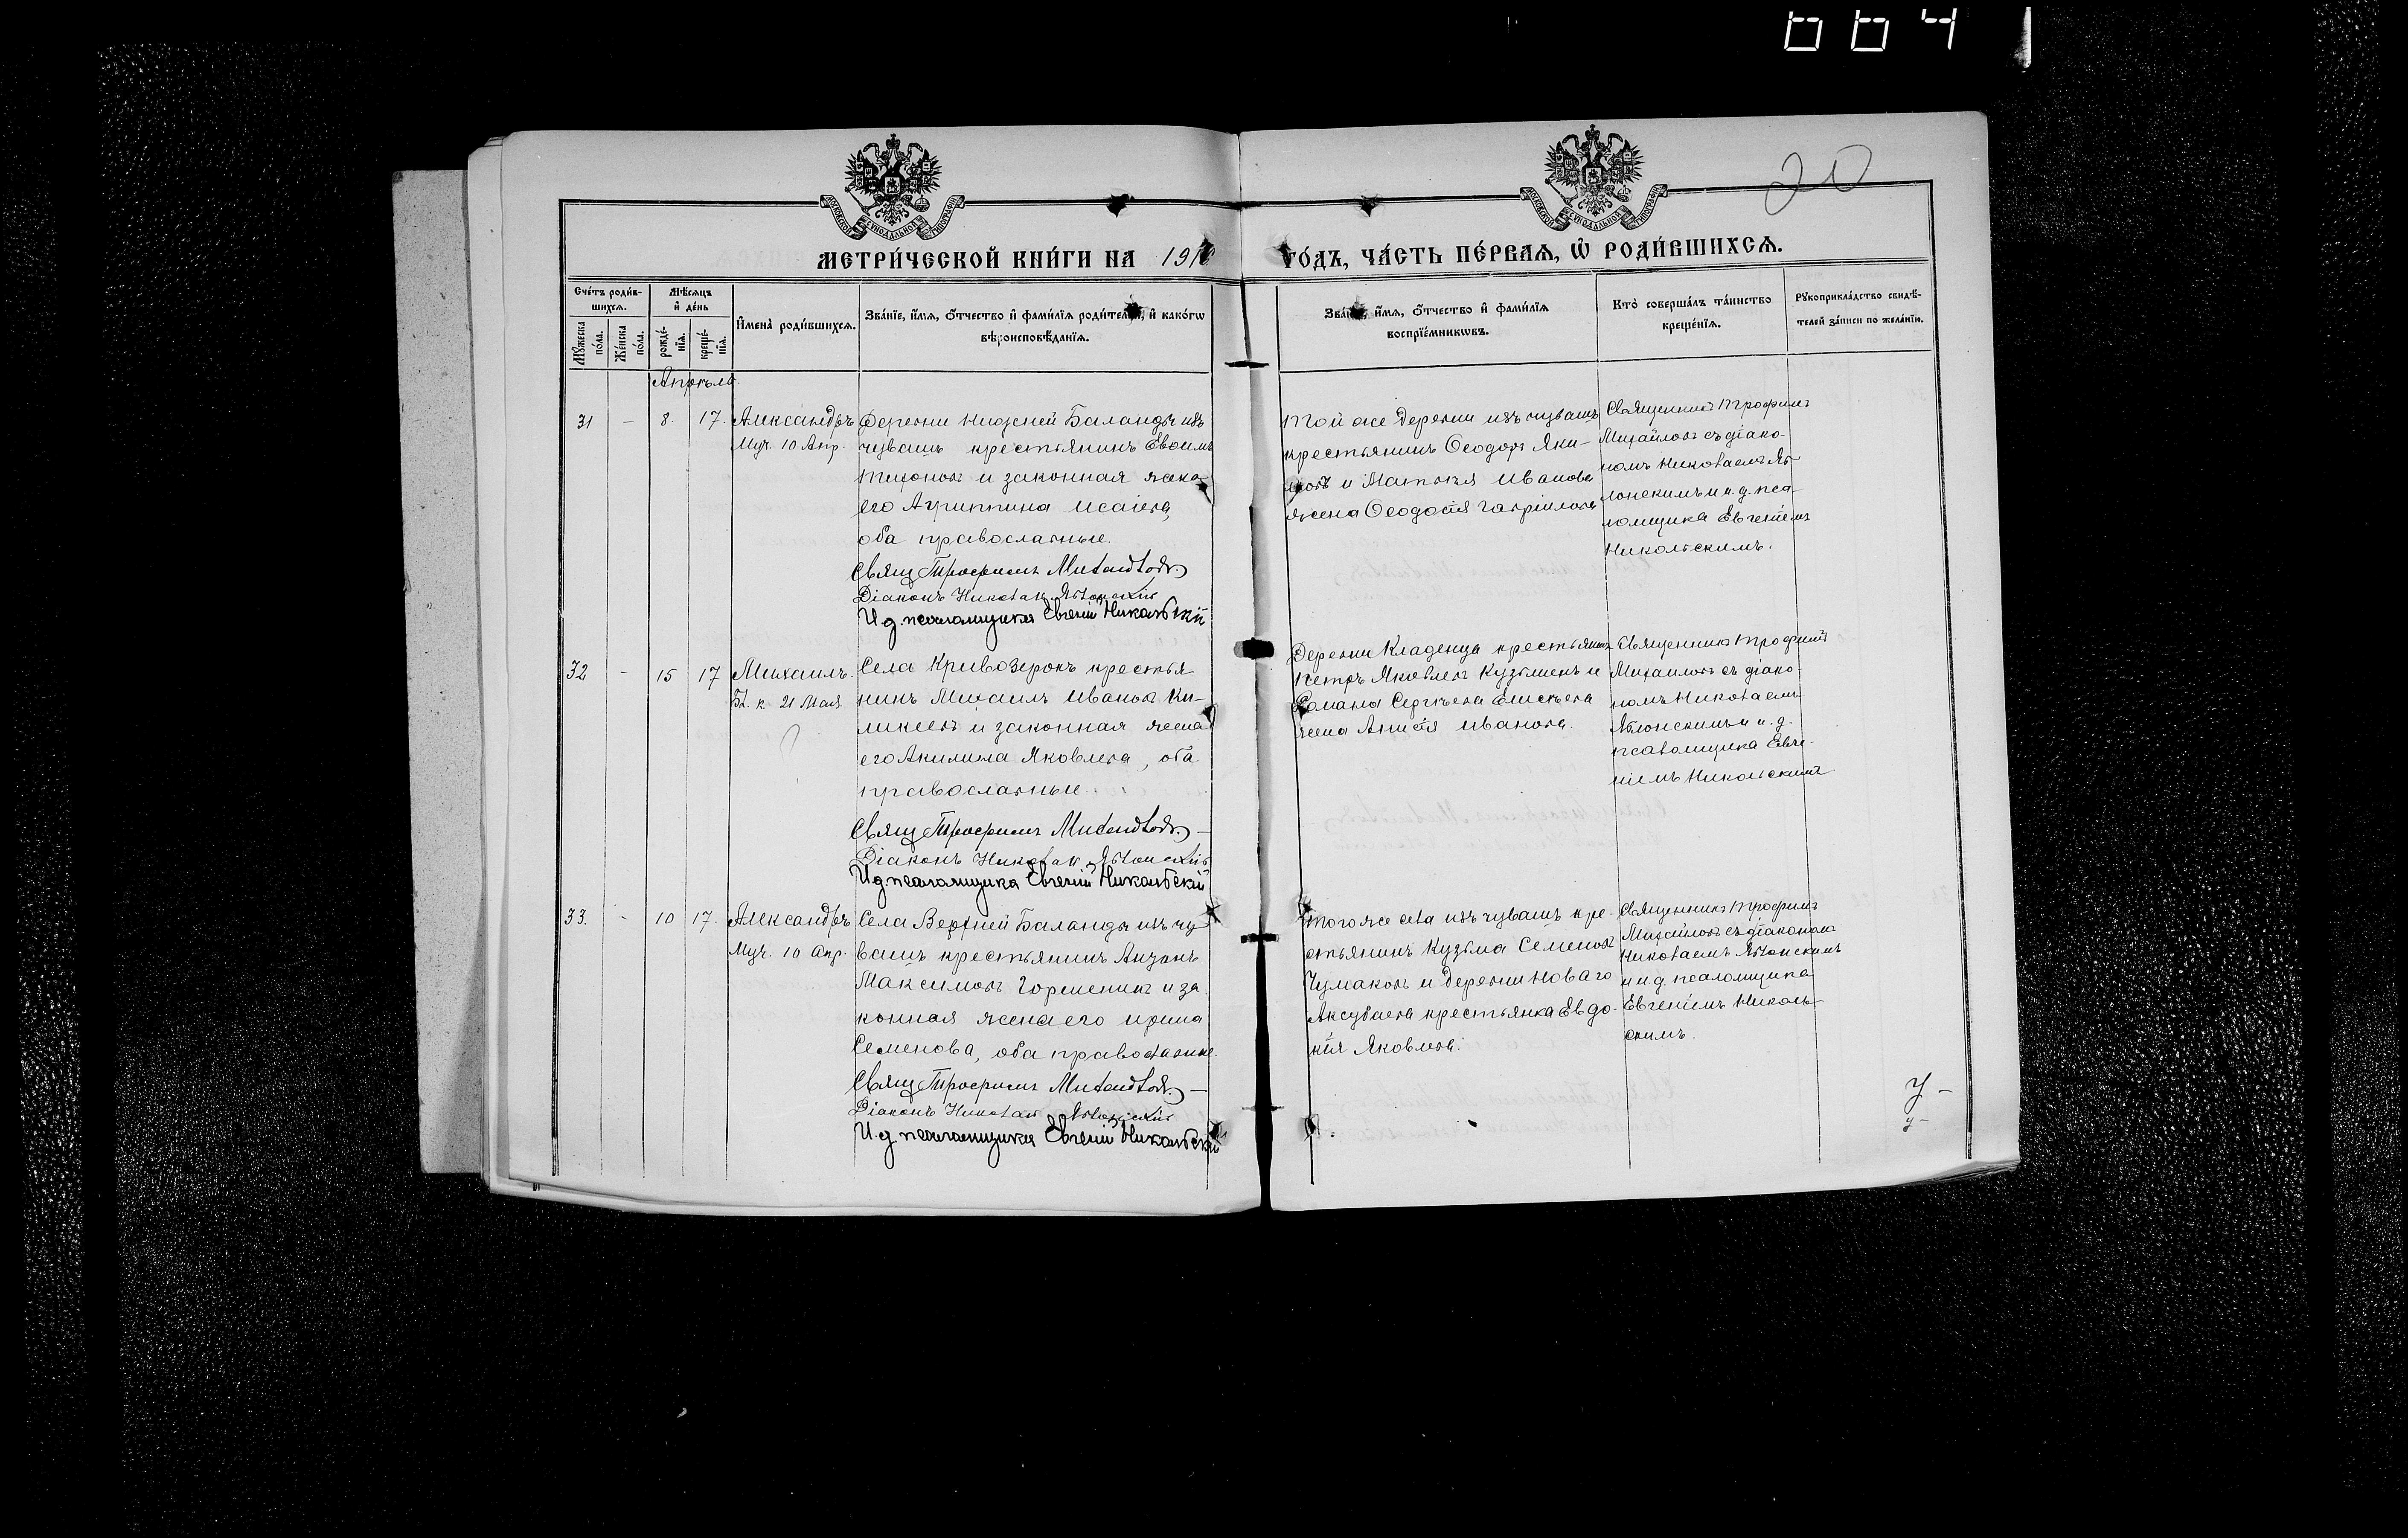 0041
20
МОСКОВСКОЙ СѴНОДАЛЬНОЙ ТИПОГРАФІИ
МОСКОВСКОЙ СѴНОДАЛЬНОЙ ТИПОГРАФІИ
МЕТРИ́ЧЕСКОЙ КНИ́ГИ НА 1910 ГО́ДЪ, ЧА́СТЬ ПЕ́РВАѦ, Ѿ РОДИ́ВШИХСѦ.
Сче́тъ роди́в-
шихсѧ.
Мꙋ́жеска по́ла.
Же́нска по́ла.
Мѣ́сѧцъ
и҆ де́нь
рожде́-
нїѧ.
креще́-
нїѧ.
И҆мена̀ роди́вшихсѧ.
Зва́нїе, и҆́мѧ, ѻ҆́тчество и҆ фами́лїѧ роди́телей, и҆ како́гѡ
вѣроисповѣ́данїѧ.
Зва́нїе, и҆́мѧ, ѻ҆́тчество и҆ фами́лїѧ
воспрїе́мникѡвъ.
Кто̀ соверша́лъ та́инство
креще́нїѧ.
Рꙋкоприкла́дство свидѣ́-
телей за́писи по жела́нїю.
Апрѣля
31 - 8. 17.
Александръ
Муч. 10 Апр.
Деревни Нижней Баланды изъ
чувашъ крестьянинъ Евѳимъ
Тихоновъ и законная жена
его Агриппина Исаіева,
оба православные.
Свящ. Трофимъ Михайловъ
Діаконъ Николай Яблонскій
И.д. псаломщика Евгеній Никольскій
Той же деревни изъ чувашъ
крестьянинъ Ѳеодоръ Яки-
мовъ и Матвѣя Иванова
жена Ѳеодосія Гавріилова
Священникъ Трофимъ
Михайловъ съ діако-
номъ Николаемъ Яб-
лонскимъ и и.д. пса-
ломщика Евгеніемъ
Никольскимъ.
32 - 15 17
Михаилъ.
Бл. к. 21 Мая
Села Кривозерокъ крестья
нинъ Михаилъ Ивановъ Ки-
ликеевъ и законная жена
его Акилина Яковлева, оба
православные.
Свящ. Трофимъ Михайловъ
Діаконъ Николай Яблонскій
И.д. псаломщика Евгеній Никольскій
Деревни Кладенца крестьянинъ
Петръ Яковлевъ Кузьминъ и
Романа Сергѣева Елисѣева
жена Анисія Иванова.
Священникъ Трофимъ
Михайловъ съ діако-
номъ Николаемъ
Яблонскимъ и и.д.
псаломщика Евге-
ніемъ Никольскимъ
33. - 10 17.
Александръ
Муч. 10 Апр.
Села Верхней Баланды изъ чу
вашъ крестьянинъ
Максимовъ и за
конная жена его Ирина
Семенова, оба православные.
Свящ. Трофимъ Михайловъ
Діаконъ Николай Яблонскій
И.д. псаломщика Евгеній Никольскій
Того же села изъ чувашъ кре-
стьянинъ Кузьма Семеновъ
Чумаковъ и деревни Новаго
Аксубаева крестьянка Евдо-
кія Яковлева.
Священникъ Трофимъ
Михайловъ съ діакономъ
Николаемъ Яблонскимъ
и и.д. псаломщика
Евгеніемъ Николь-
скимъ.